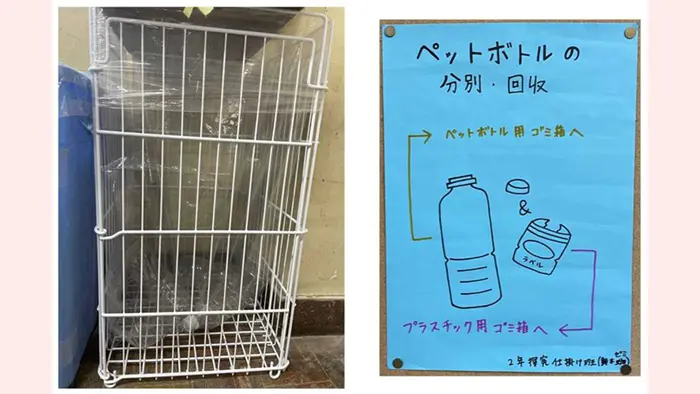 ペットボトルの
分別・回収
ペットボトル用ゴミ箱へ
&
ラベル
プラスチック用ゴミ箱へ
2年探究仕掛け班(
ゼミ